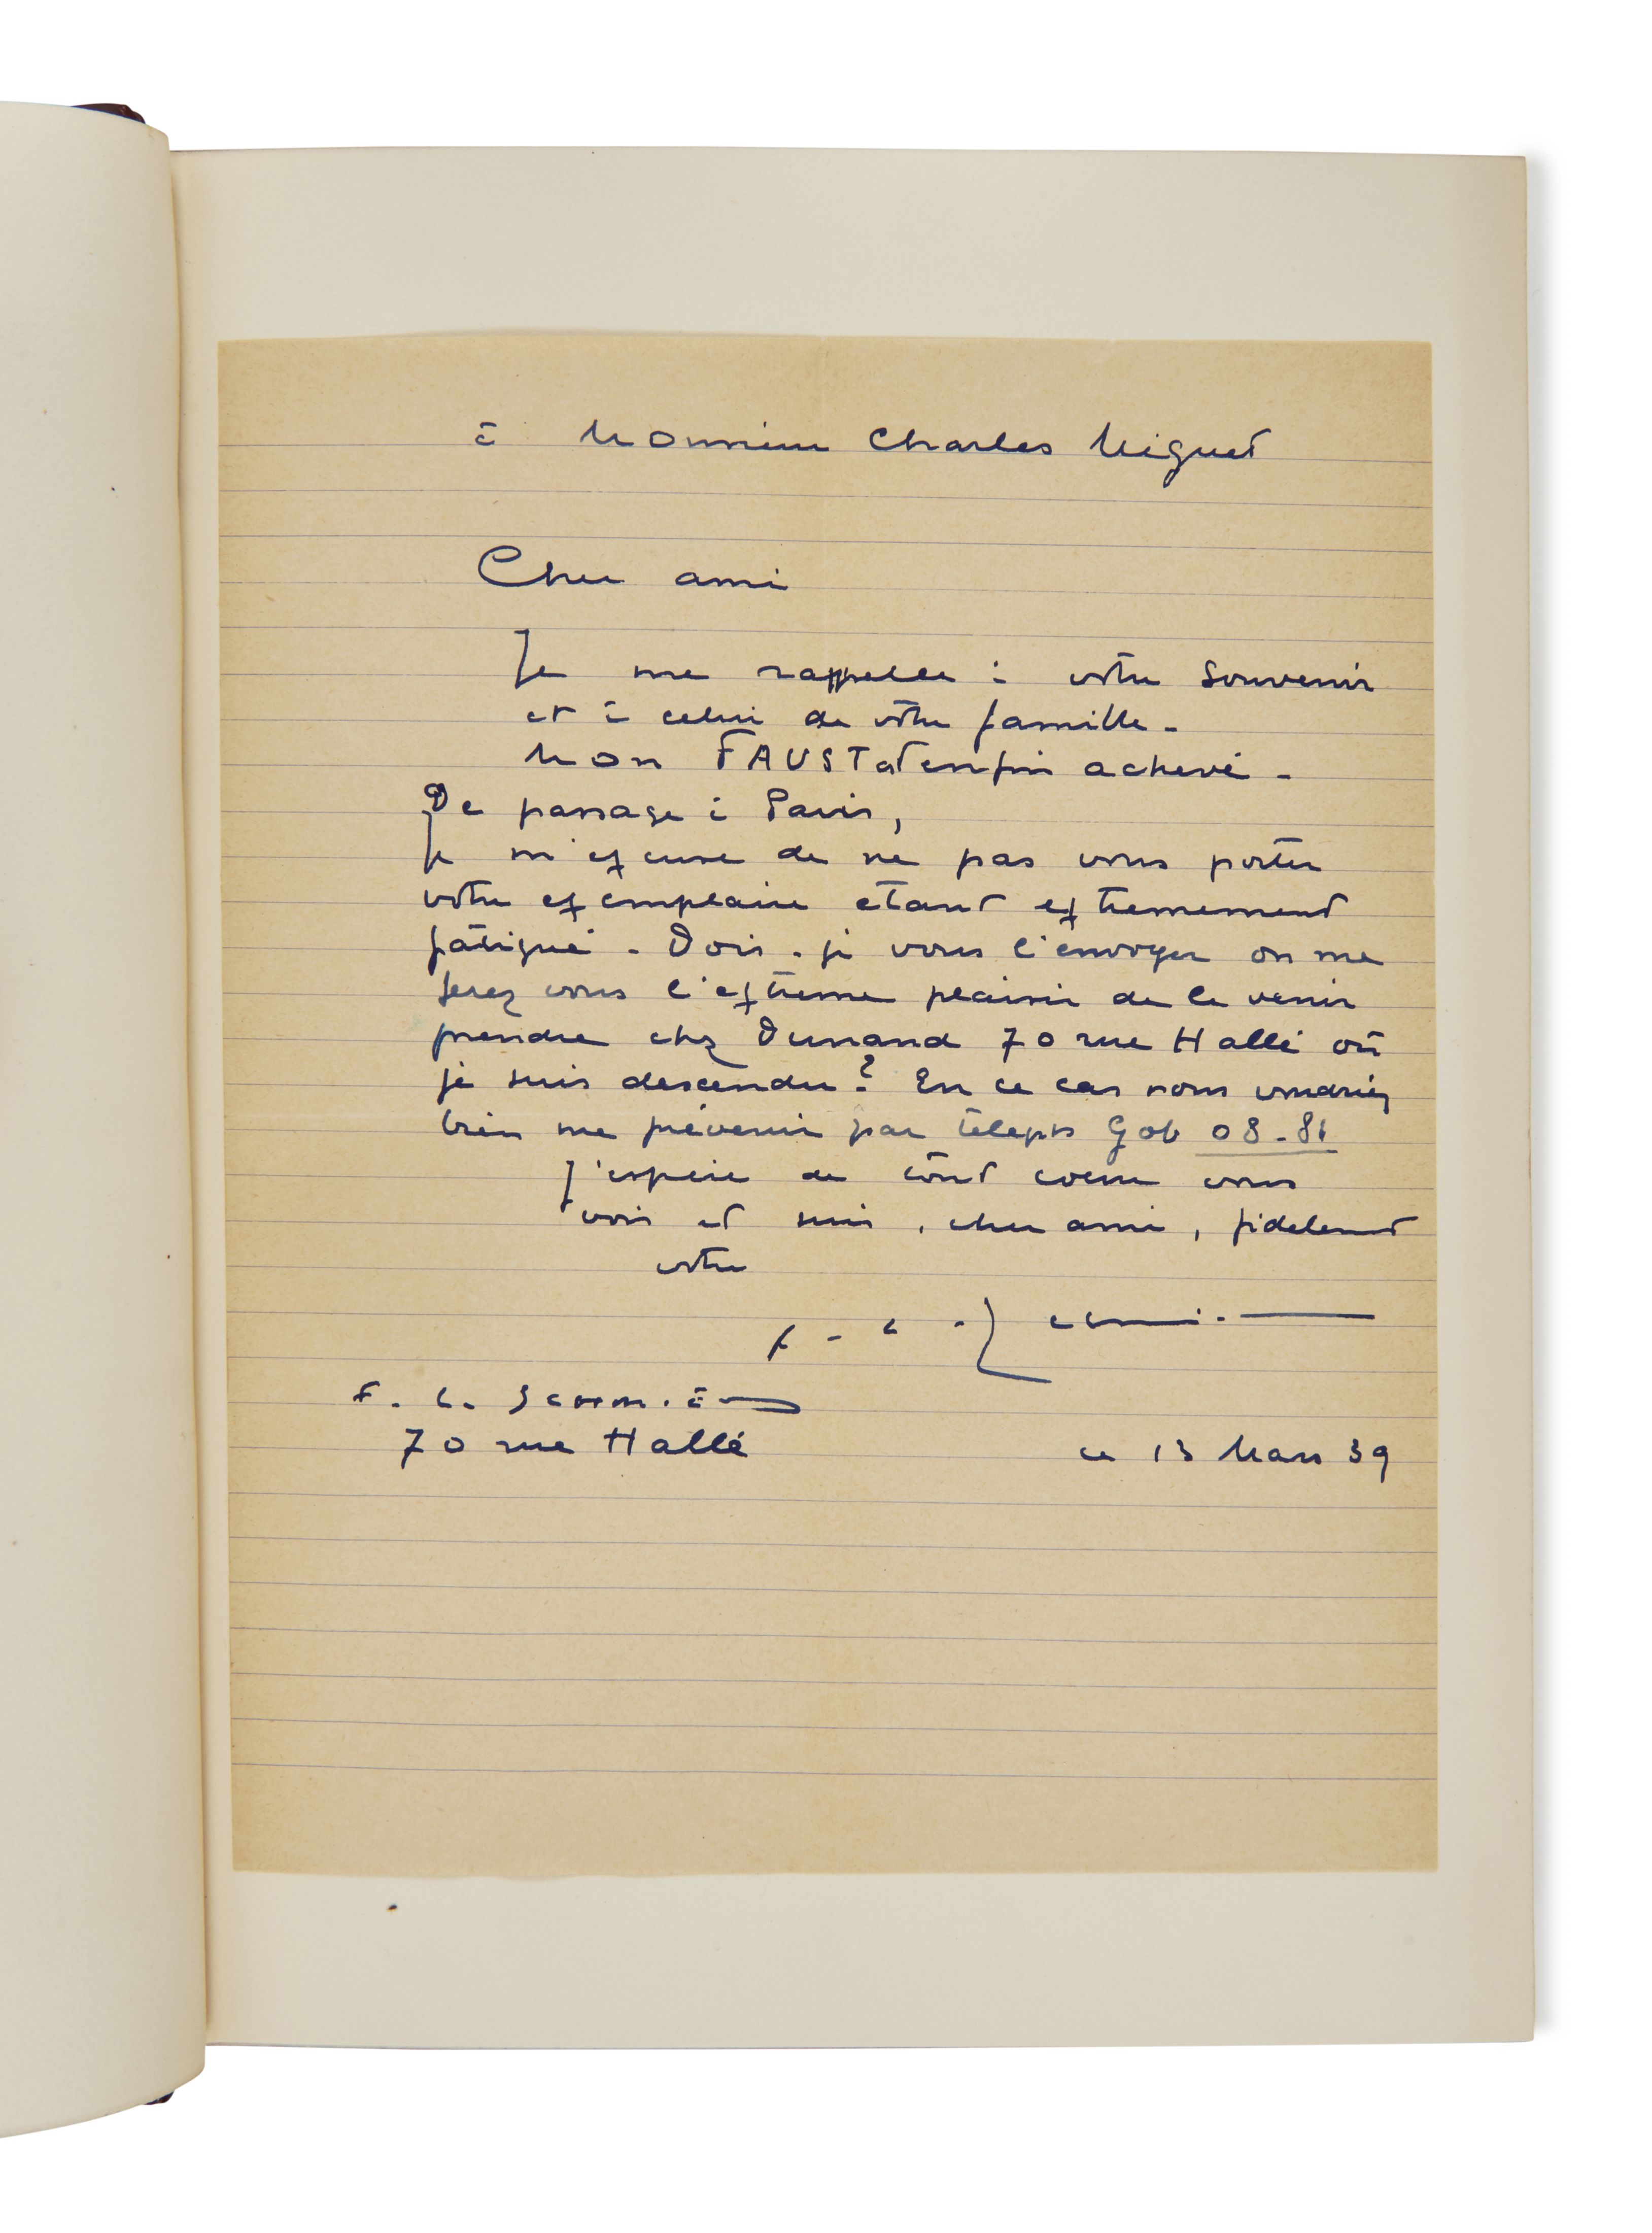 à Monsieur Charles Miguet
Cher ami
Je me rappelle à votre souvenir
et à celui de votre famille -
Mon FAUST est enfin achevé -
De passage à Paris,
Je m'excuse de ne pas vous porter
votre exemplaire étant extremement
fatigué - Dois-je vous l'envoyer ou me
ferez vous l'extreme plaisir de le venir
prendre chez Dunand 70 rue Hallé où
je suis descendu ? En ce cas vous voudriez
bien me prévenir par téleph Gob 08-81
J'espère de tout coeur vous
voir et suis, cher ami, fidelement
votre
F. L. Schmied
70 rue Hallé
ce 13 Mars 39